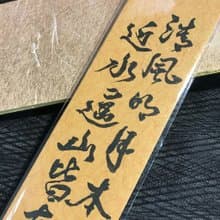 清風明月本
近水遠山皆